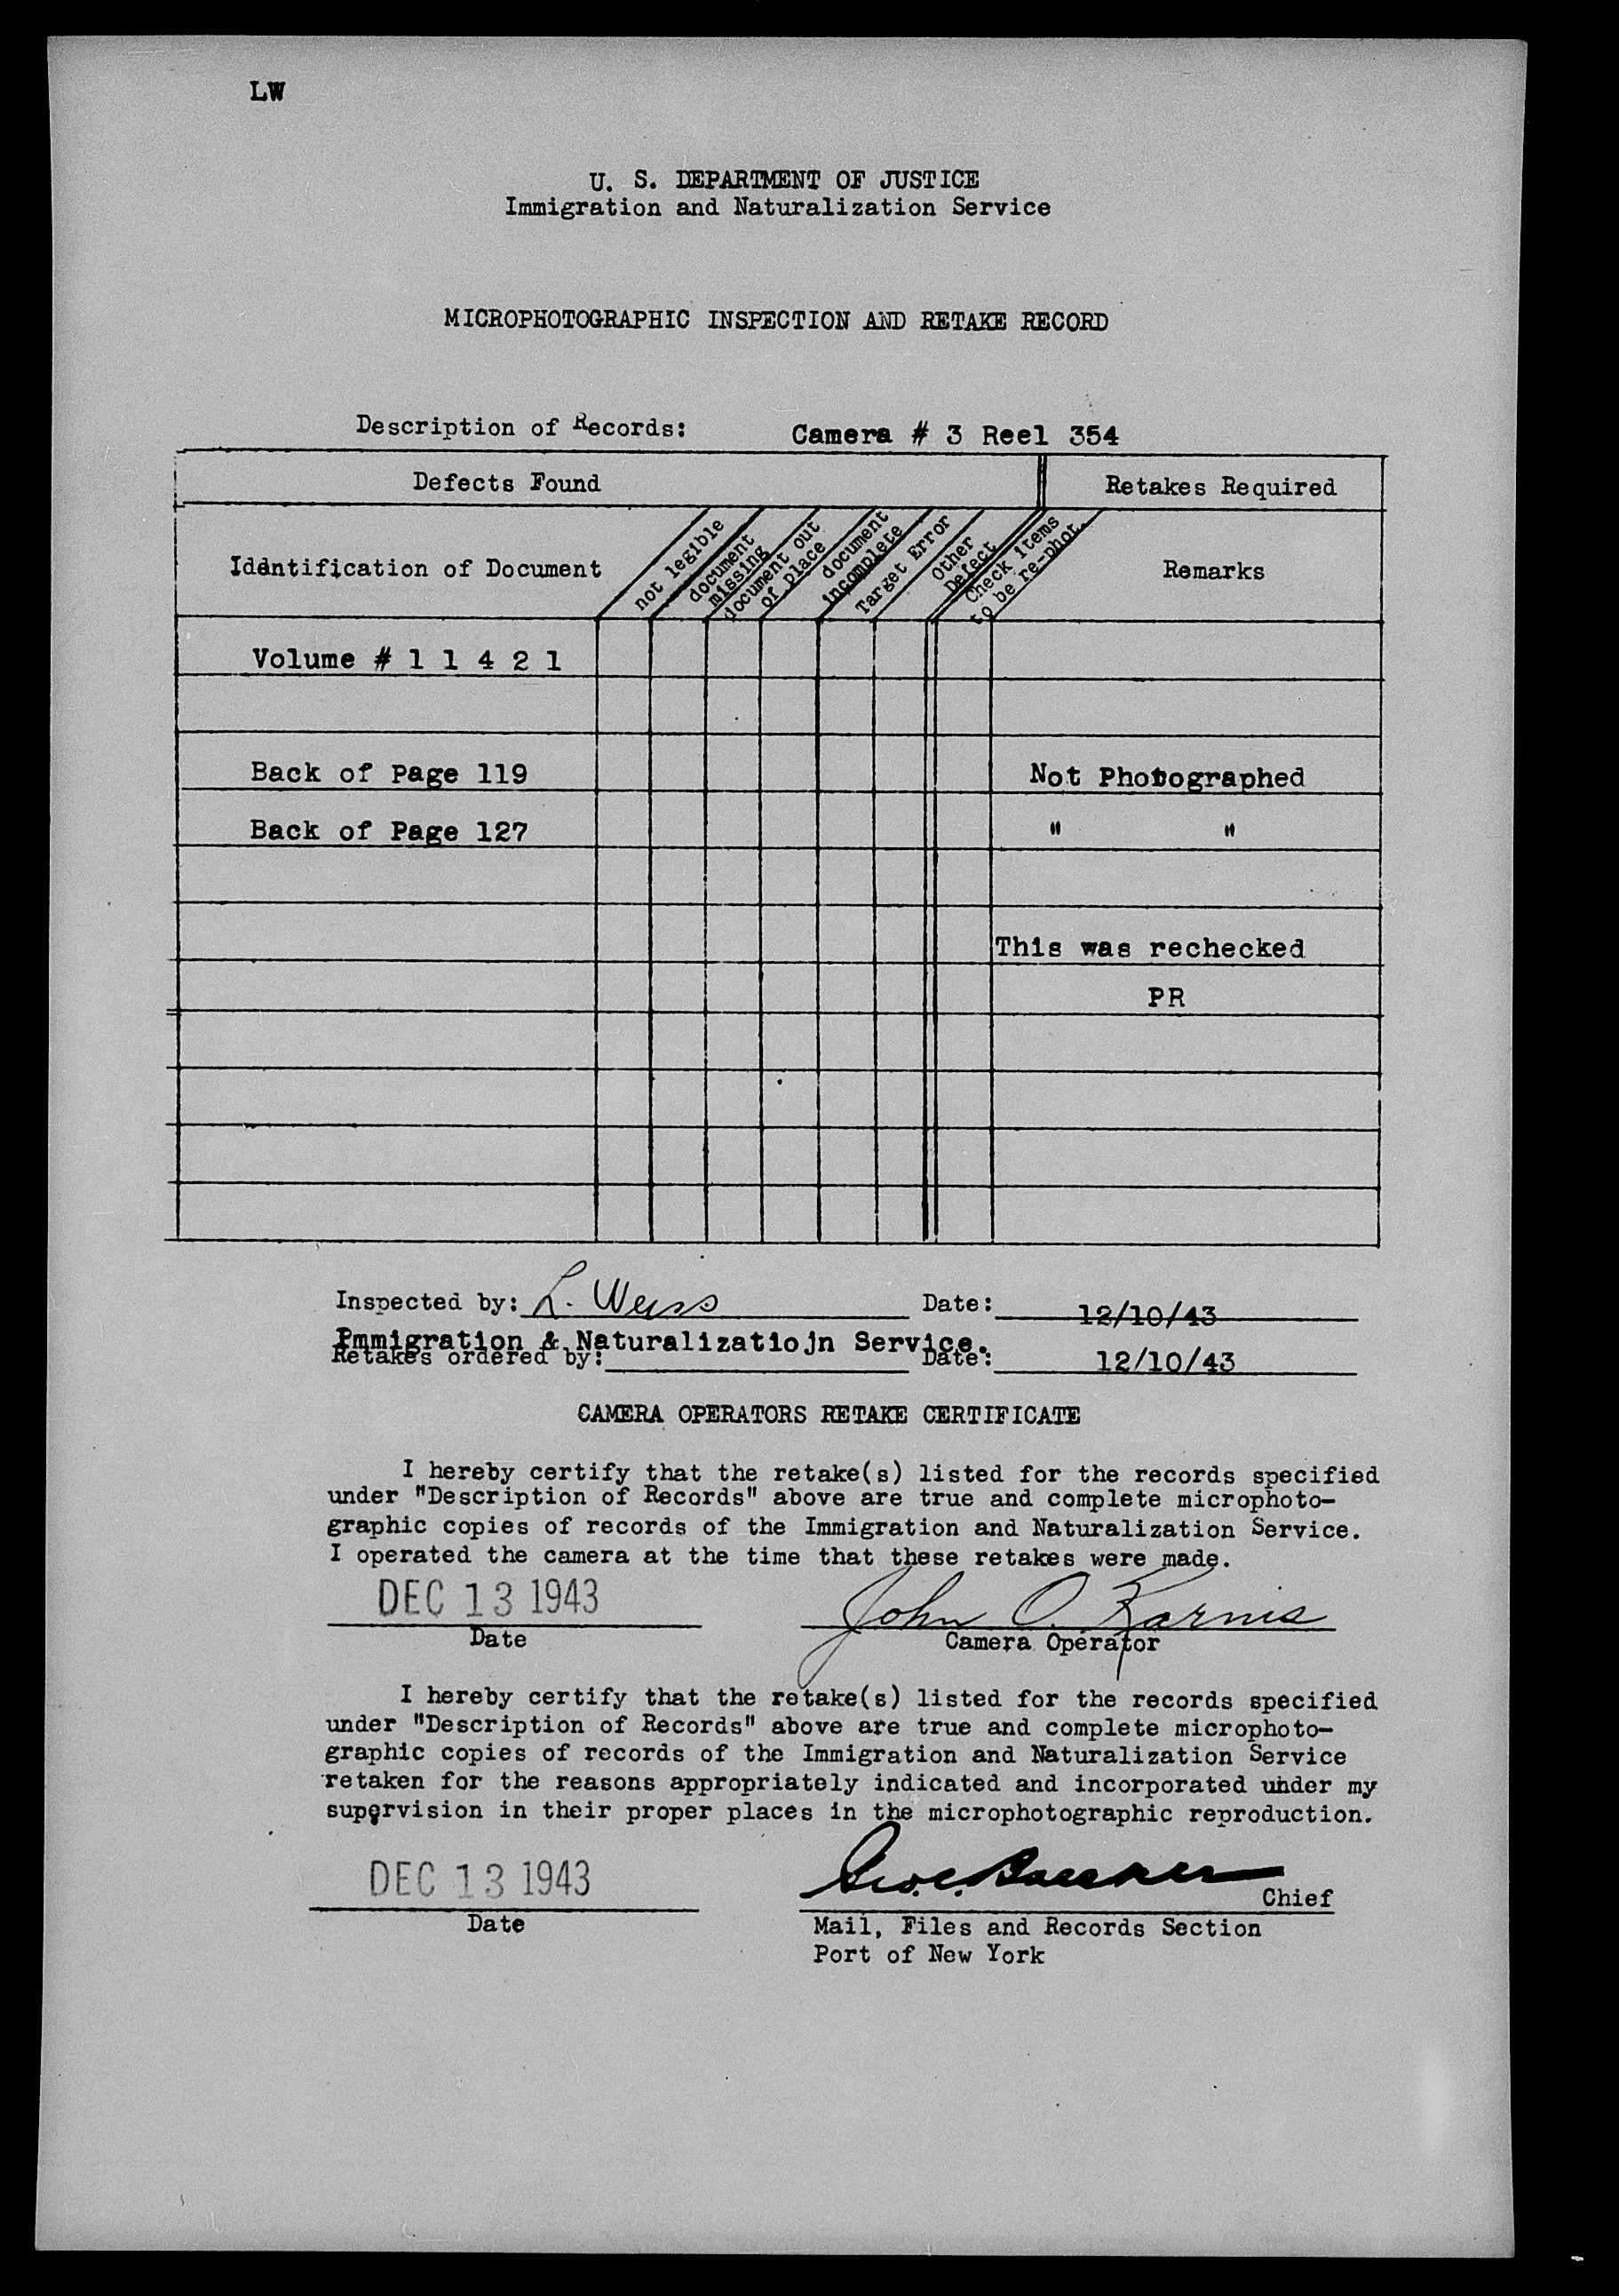 LW
U. S. DEPARTMENT OF JUSTICE
Immigration and Naturalization Service
MICROPHOTOGRAPHIC INSPECTION AND RETAKE RECORD
Description of Records: Camera # 3 Reel 354
Defects Found Retakes Required
Identification of Document
not legible
document
missing
document out
of place
document
incomplete
Target Error
Other
Defect
Check items
to be re-phot.
Remarks
Volume # 1 1 4 2 1
Back of Page 119 Not Photographed
Back of Page 127 " "
This was rechecked
PR
Inspected by: L. Weiss Date: 12/10/43
Pmmigration & Naturalizatiojn Service.
Retakes ordered by: Date: 12/10/43
CAMERA OPERATORS RETAKE CERTIFICATE
I hereby certify that the retake(s) listed for the records specified
under "Description of Records" above are true and complete microphoto-
graphic copies of records of the Immigration and Naturalization Service.
I operated the camera at the time that these retakes were made.
DEC 13 1943 John O. Karnis
Date Camera Operator
I hereby certify that the retake(s) listed for the records specified
under "Description of Records" above are true and complete microphoto-
graphic copies of records of the Immigration and Naturalization Service
retaken for the reasons appropriately indicated and incorporated under my
supervision in their proper places in the microphotographic reproduction.
DEC 13 1943
Chief
Date Mail, Files and Records Section
Port of New York